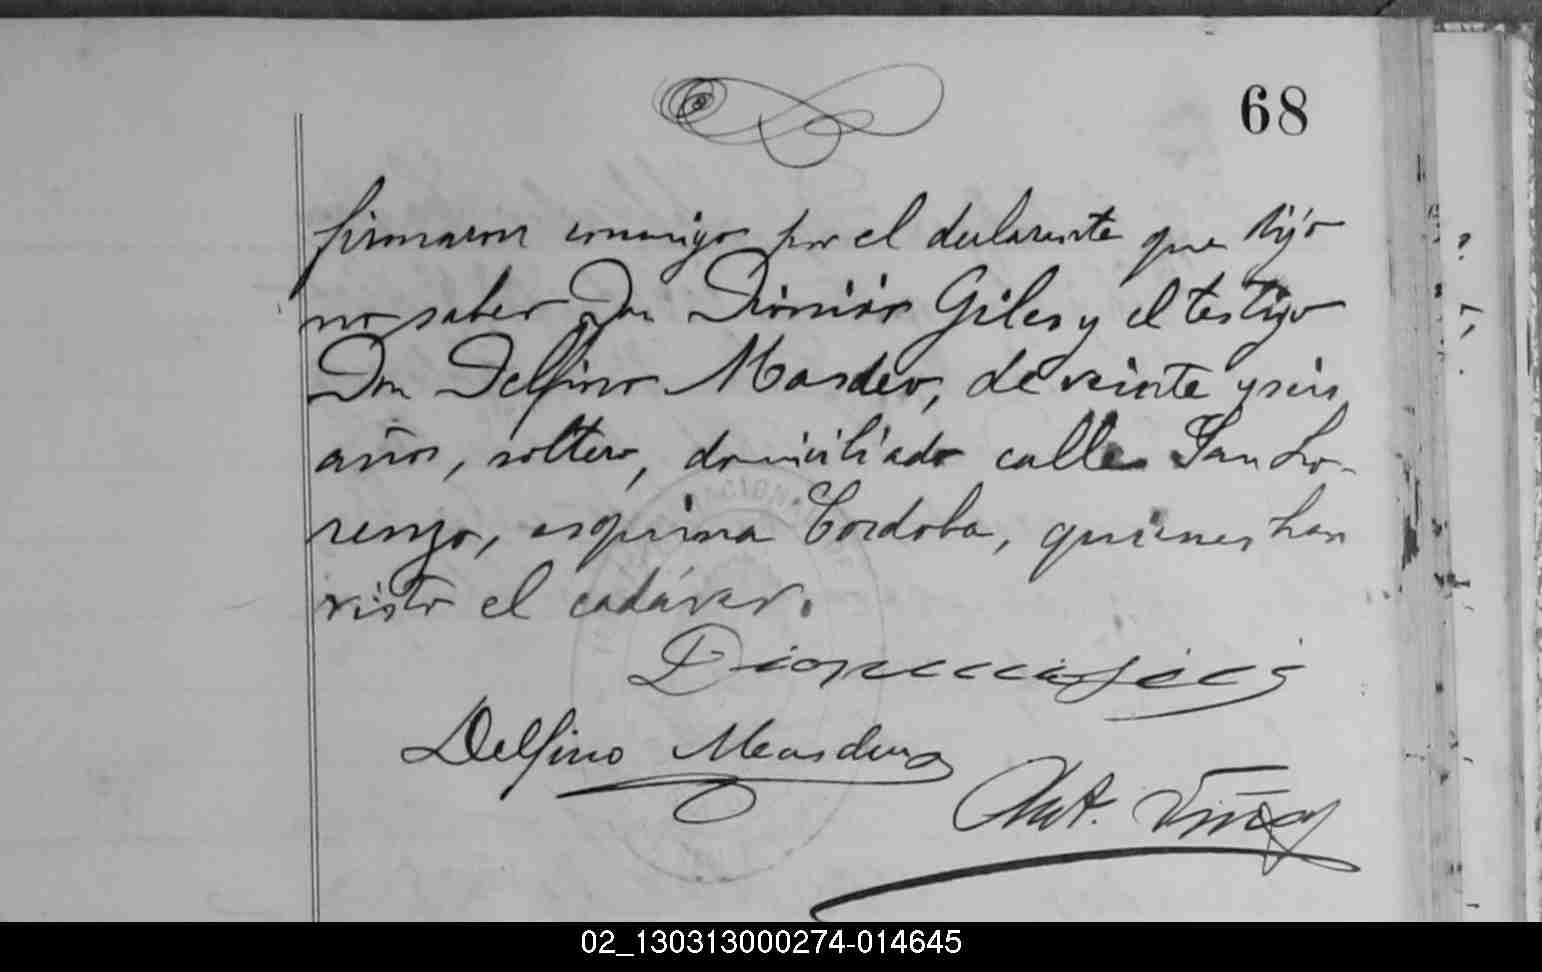 68
firmaron conmigo por el declarante que dijo
no saber Don Dionisio Giles y el testigo
Don Delfino Masdeu, de veinte y seis
años, soltero, domiciliado calle San Lo-
renzo, esquina Cordoba, quienes han
visto el cadáver.
Delfino Masdeu
Ant. Viñas
02_130313000274-014645